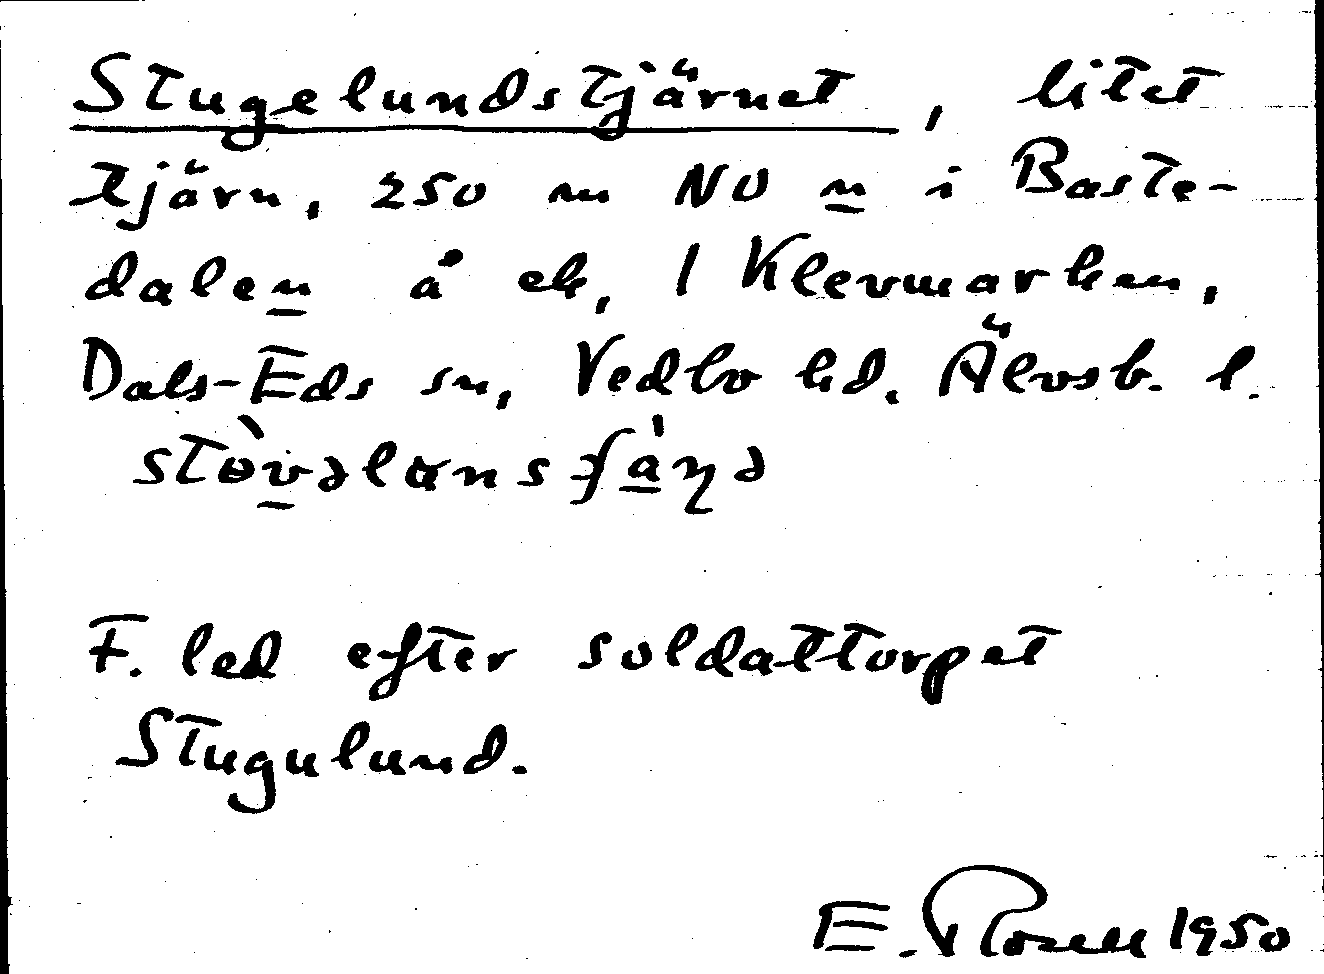 Stugelundstjärnet, litet
tjärn, 250 m NO n i Baste-
dalen å ek, 1 Klevmarken,
Dals-Eds sn, Vedbo hd. Älvsb. l.
F. led efter soldattorpet
Stugulund.
E. Rosell 1950